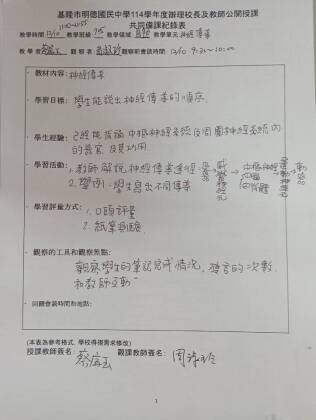 基隆市明德國民中學114學年度辦理校長及教師公開授課
共同備課紀錄表
教學時間:12/10 教學班級:705 教學領域:自然 教學單元:神經傳導
10:10-10:55
教學者: 觀察者: 觀察前會談時間:12/10 9:30~10:00
教材內容:神經傳導
學習目標:學生能說出神經傳導的順序
學生經驗:已經能背誦中樞神經系統及周圍神經系統內
的器官及其功用
學習活動:1.教師解說神經傳導途徑
2.習作:學生寫出不同傳導
學習評量方式:
1.口頭評量
2.紙筆測驗
觀察的工具和觀察焦點:
觀察學生的筆記完成情況、發言的次數、
和教師互動
回饋會談時間和地點:
(本表為參考格式,學校得視需求修改)
授課教師簽名: 觀課教師簽名:
1